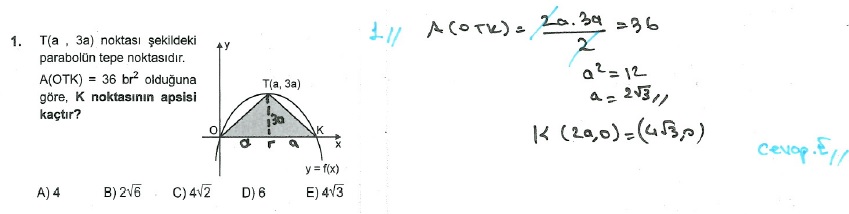 1. T(a , 3a) noktası şekildeki
parabolün tepe noktasıdır.
A(OTK) = 36 br² olduğuna
göre, K noktasının apsisi
kaçtır?
y
T(a, 3a)
3a
O
K
x
a
r
a
y = f(x)
A) 4 B) 2√6 C) 4√2 D) 6 E) 4√3
1// A(OTK) = 2a.3a / 2 = 36
a² = 12
a = 2√3//
K(2a,0) = (4√3,0)
Cevap.E//